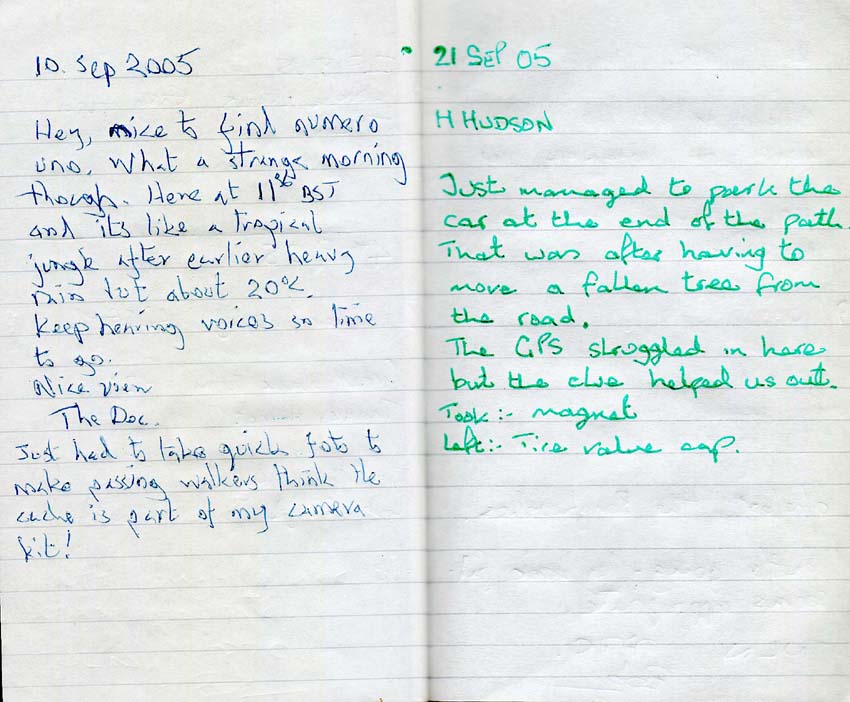 10. Sep 2005
Hey, nice to find numero
uno. What a strange morning
though. Here at 11 BST
and its like a tropical
jungle after earlier heavy
rain but about 20°C.
Keep hearing voices so time
to go.
Nice view
The Doc.
Just had to take quick foto to
make passing walkers think the
cache is part of my camera
kit!
21 SEP 05
H HUDSON
Just managed to park the
car at the end of the path.
That was after having to
move a fallen tree from
the road.
The GPS struggled in here
but the clue helped us out.
Took:- magnet
Left:- Tire valve cap.